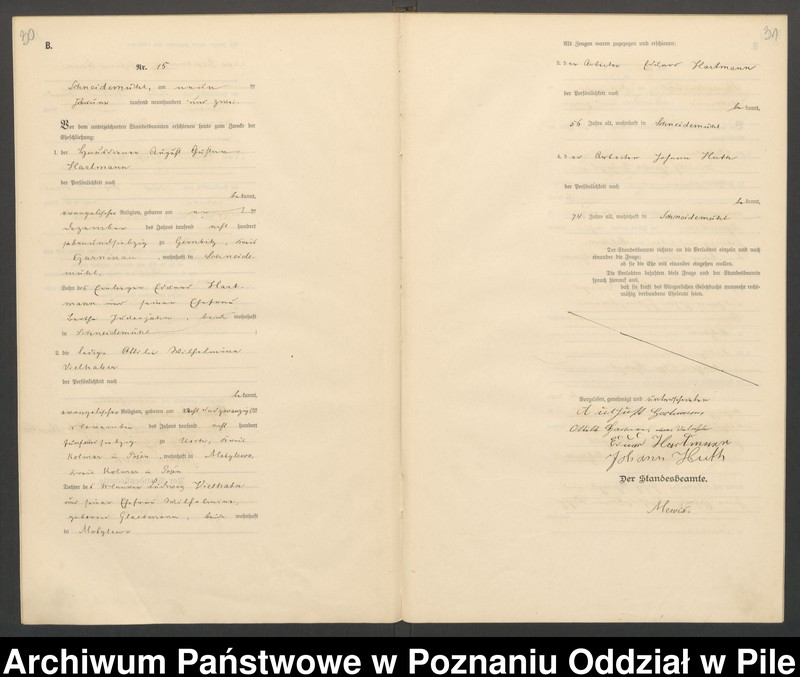 30
B.
Nr. 15
Schneidemühl, am neun ten
Januar tausend neunhundert und zwei
Vor dem unterzeichneten Standesbeamten erschienen heute zum Zwecke der
Eheschließung:
1. der Hausdiener August Gustav
Hartmann
der Persönlichkeit nach
be kannt,
evangelischer Religion, geboren am
Dezember des Jahres tausend acht hundert
siebenundsiebzig zu Gembitz, Kreis
Czarnikau, wohnhaft in Schneide-
mühl,
Sohn des Eduard Hart-
mann und seiner Ehefrau
Bertha, beide wohnhaft
in Schneidemühl
2. die ledige Ottilie Wilhelmine
der Persönlichkeit nach
be kannt,
evangelischer Religion, geboren am acht und zwanzigsten
November des Jahres tausend acht hundert
fünfundsiebzig zu Usch, Kreis
Kolmar in Posen, wohnhaft in Motylewo,
Kreis Kolmar in Posen
Tochter des Ludwig
und seiner Ehefrau Wilhelmine,
geborene, beide wohnhaft
in Motylewo
31
Als Zeugen waren zugezogen und erschienen:
3. der Arbeiter Eduard Hartmann
der Persönlichkeit nach
be kannt,
56 Jahre alt, wohnhaft in Schneidemühl
4. der Arbeiter Johann Huth
der Persönlichkeit nach
be kannt,
74 Jahre alt, wohnhaft in Schneidemühl
Der Standesbeamte richtete an die Verlobten einzeln und nach
einander die Frage:
ob sie die Ehe mit einander eingehen wollen.
Die Verlobten bejahten diese Frage und der Standesbeamte
sprach hierauf aus,
daß sie kraft des Bürgerlichen Gesetzbuchs nunmehr recht-
mäßig verbundene Eheleute seien.
Vorgelesen, genehmigt und unterschrieben
August Hartmann,
Ottilie Hartmann
Eduard Hartmann
Johann Huth
Der Standesbeamte.
Mewis.
Archiwum Państwowe w Poznaniu Oddział w Pile